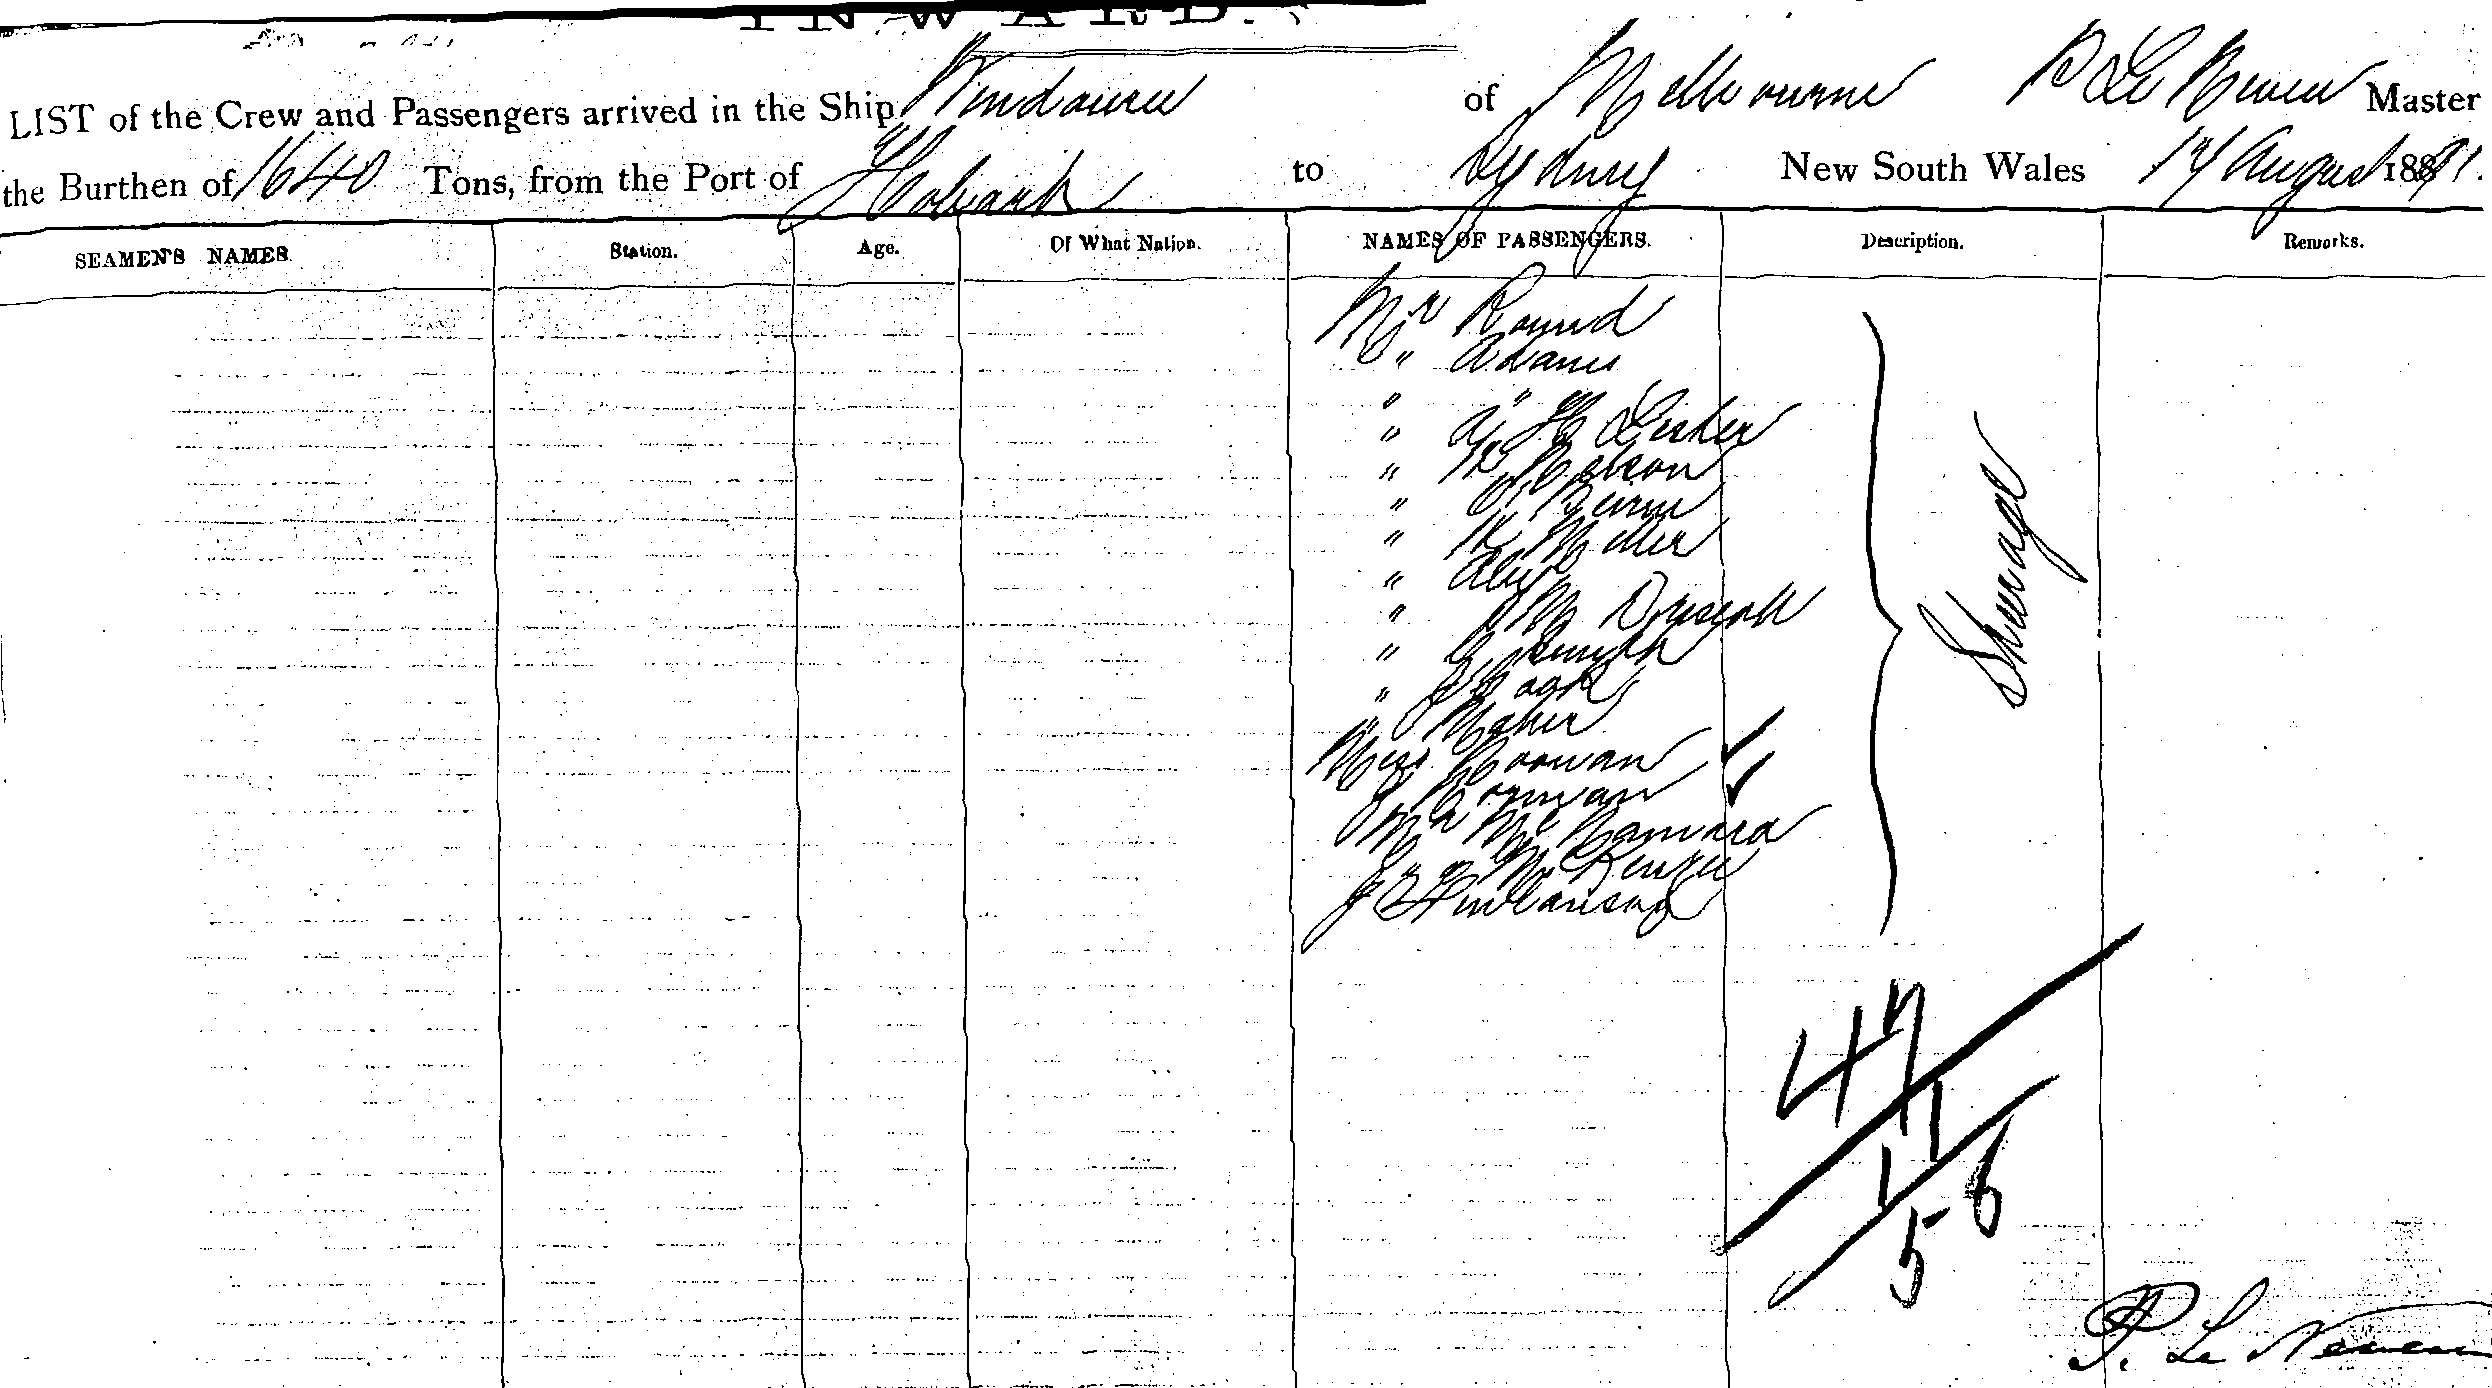 INWARD.
LIST of the Crew and Passengers arrived in the Ship Windouree of Melbourne P Le Neveu Master
the Burthen of 1640 Tons, from the Port of Hobart to Sydney New South Wales 17 August 1891.
SEAMEN'S NAMES. Station. Age. Of What Nation. NAMES OF PASSENGERS. Description. Remarks.
Mr Round
" Adams
" "
" A H Lister
" W
" O'Beirne
" W Miller
" Alex
" M Driscoll
" G Smyth
" J
" Maher
Miss Noonan
J Noonan
Mr McNamara
" McKenzie
J
Steerage
47
11
1 6
5
P. Le Neveu